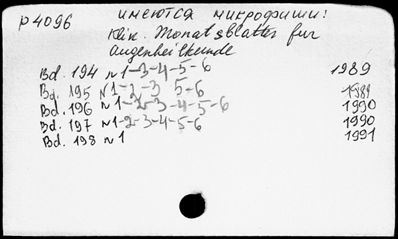 р 4096
имеются микрофиши:
Klin. Monatsblatter fur
augenheilkunde
Bd. 194 №1-3-4-5-6 1989
Bd. 195 №1-2-3 5-6 1989
Bd. 196 №1-2-3-4-5-6 1990
Bd. 197 №1-2-3-4-5-6 1990
Bd. 198 №1 1991